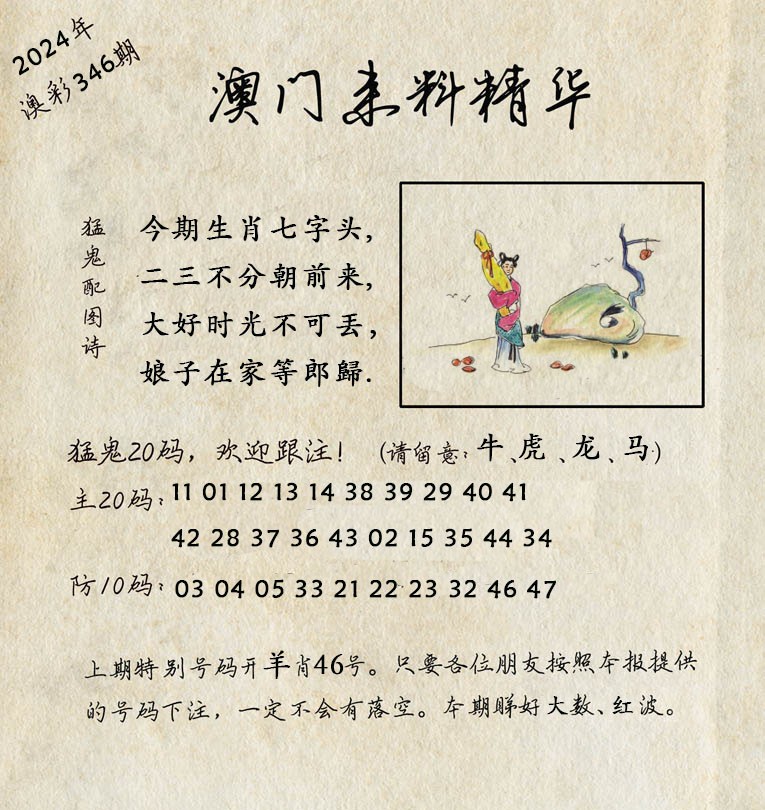 2024年
澳彩346期
澳门来料精华
猛鬼配图诗
今期生肖七字头,
二三不分朝前来,
大好时光不可丢,
娘子在家等郎歸.
猛鬼20码，欢迎跟注！（请留意：牛、虎、龙、马）
主20码：11 01 12 13 14 38 39 29 40 41
42 28 37 36 43 02 15 35 44 34
防10码：03 04 05 33 21 22 23 32 46 47
上期特别号码开羊肖46号。只要各位朋友按照本报提供
的号码下注，一定不会有落空。本期睇好大数、红波。